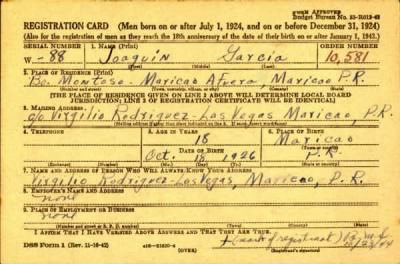 FORM APPROVED
Budget Bureau No. 33-R012-42
REGISTRATION CARD (Men born on or after July 1, 1924, and on or before December 31, 1924)
(Also for the registration of men as they reach the 18th anniversary of the date of their birth on or after January 1, 1943.)
SERIAL NUMBER 1. NAME (Print) ORDER NUMBER
W -88 Joaquin Garcia 10,581
(First) (Middle) (Last)
2. PLACE OF RESIDENCE (Print)
Bo. Montoso - Maricao Afuera, Maricao P.R.
(Number and street) (Town, township, village, or city) (County) (State)
[THE PLACE OF RESIDENCE GIVEN ON LINE 2 ABOVE WILL DETERMINE LOCAL BOARD
JURISDICTION; LINE 2 OF REGISTRATION CERTIFICATE WILL BE IDENTICAL]
3. MAILING ADDRESS
c/o Virgilio Rodriguez - Las Vegas Maricao, P.R.
[Mailing address if other than place indicated on line 2. If same insert word same]
4. TELEPHONE 5. AGE IN YEARS 6. PLACE OF BIRTH
18 Maricao
DATE OF BIRTH
Oct. 18 1926 P.R.
(Exchange) (Number) (Mo.) (Day) (Yr.) (State or country)
7. NAME AND ADDRESS OF PERSON WHO WILL ALWAYS KNOW YOUR ADDRESS
Virgilio Rodriguez - Las Vegas, Maricao, P.R.
8. EMPLOYER'S NAME AND ADDRESS
none
9. PLACE OF EMPLOYMENT OR BUSINESS
none
(Number and street or R. F. D. number) (Town) (County) (State)
I AFFIRM THAT I HAVE VERIFIED ABOVE ANSWERS AND THAT THEY ARE TRUE.
DSS Form 1 (Rev. 11-16-42) (OVER) + (mark of registrant)